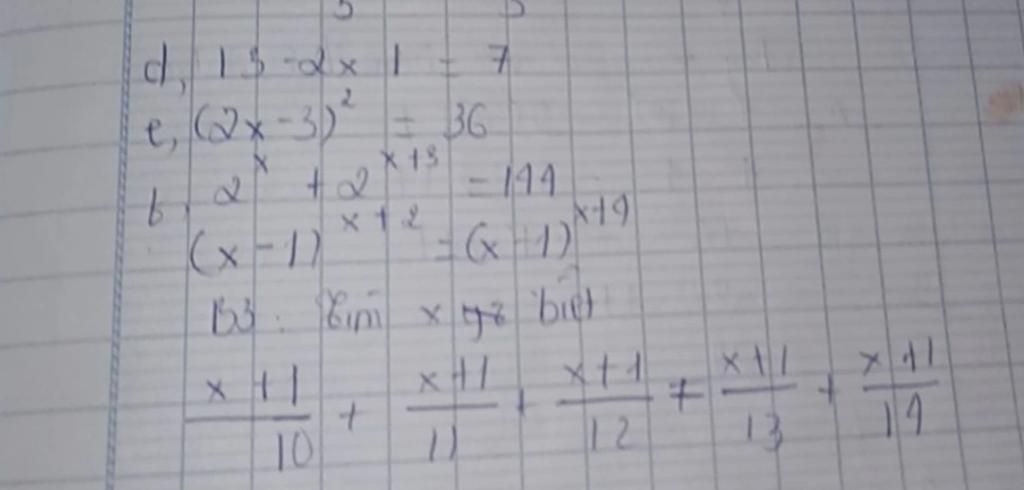 d, 13 - 2x 1 = 7
e, (2x - 3)² = 36
b, 2ˣ + 2ˣ⁺³ = 144
(x - 1)ˣ⁺² = (x - 1)ˣ⁺⁴
B3: Tìm x biết
x+1/10 + x+1/11 + x+1/12 = x+1/13 + x+1/14